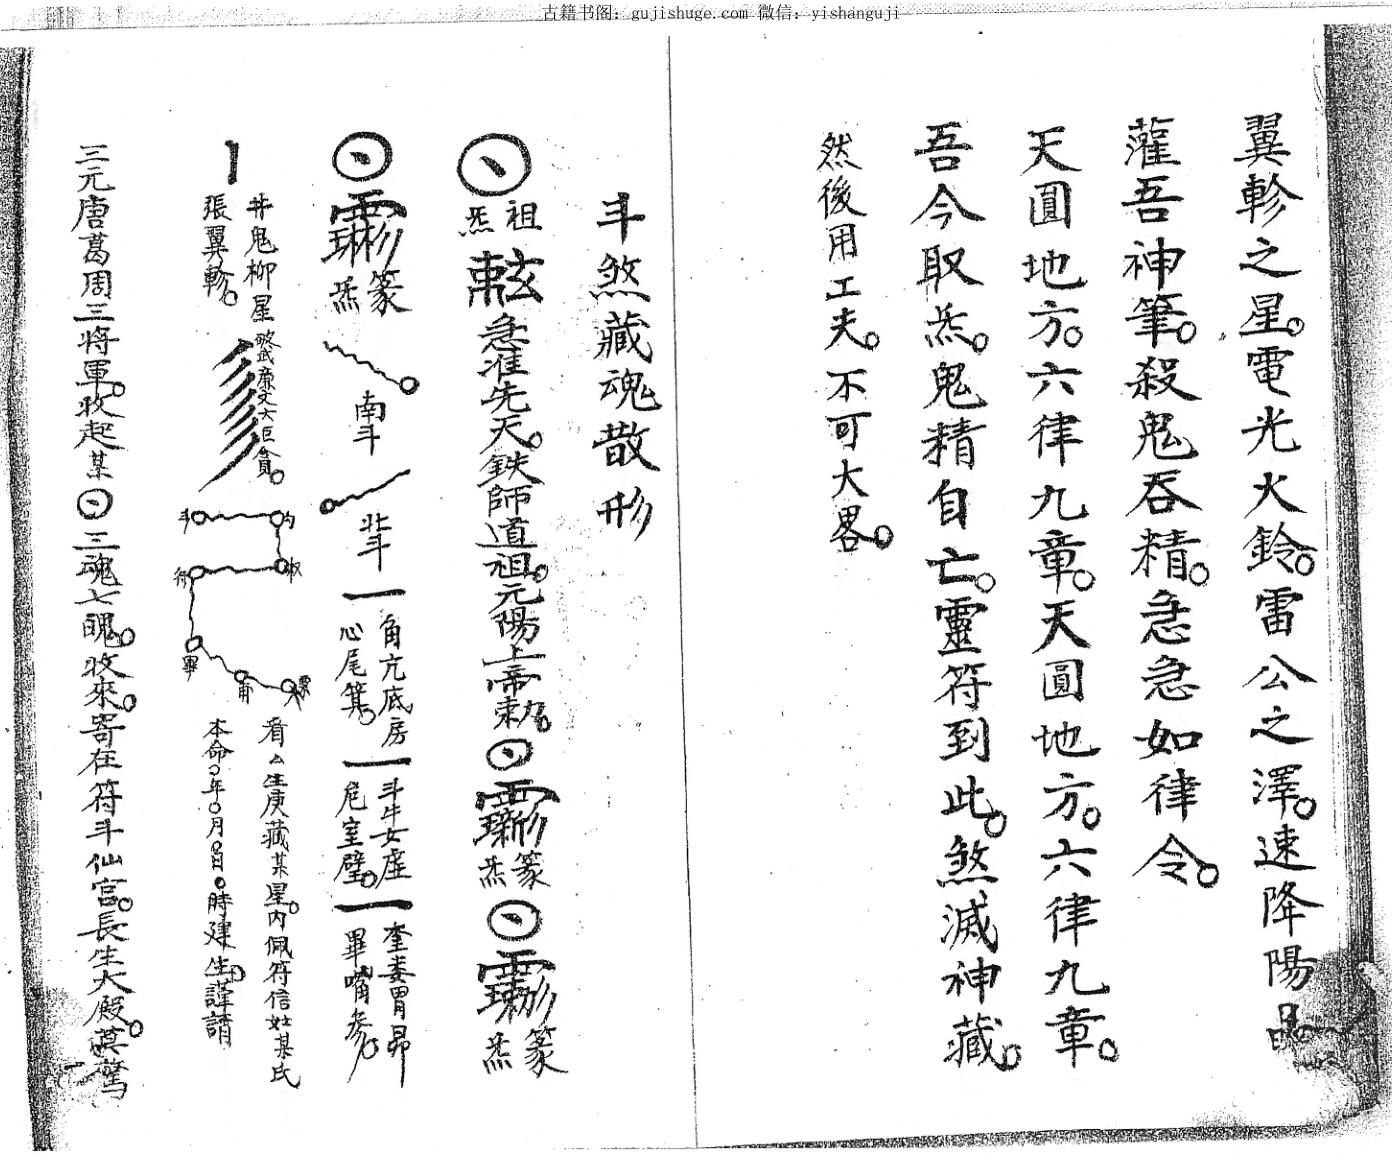 古籍书阁：gujishuge.com 微信：yishanguji
翼軫之星。電光火鈴。雷公之澤。速降陽
灌吾神筆。殺鬼吞精。急急如律令。
天圓地方。六律九章。天圓地方。六律九章。
吾今取炁。鬼精自亡。靈符到此。煞滅神藏。
然後用工夫。不可大畧。
斗煞藏魂散形
祖炁 急准先天。鉄師道祖。元陽上帝勅。 篆炁 篆炁
篆炁 南斗 北斗 角亢底房心尾箕。 斗牛女虛危室壁。 奎婁胃昴畢嘴參。
井鬼柳星張翼軫。 武廉文大巨貪。 斗 行 畢 甫 看厶生庚藏某星。内佩符信某氏
本命 年 月 日 時建生。謹請
三元唐葛周三将軍。收起某 三魂七魄。收來。寄在符斗仙宫。長生大殿。莫驚